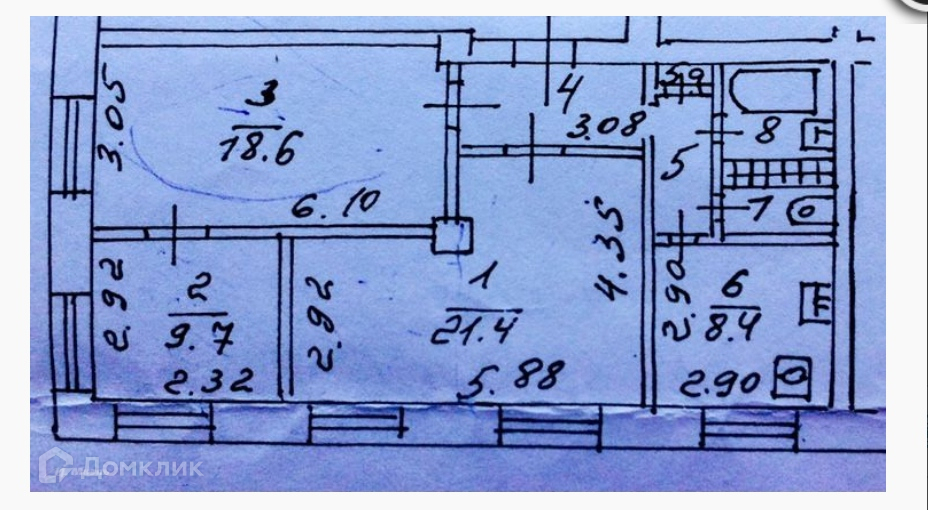 3
18.6
3.05
6.10
4
3.08
5
8
7
2
9.7
2.92
2.32
2.92
1
21.4
4.35
5.88
2.90
6
8.4
2.90
Домклик